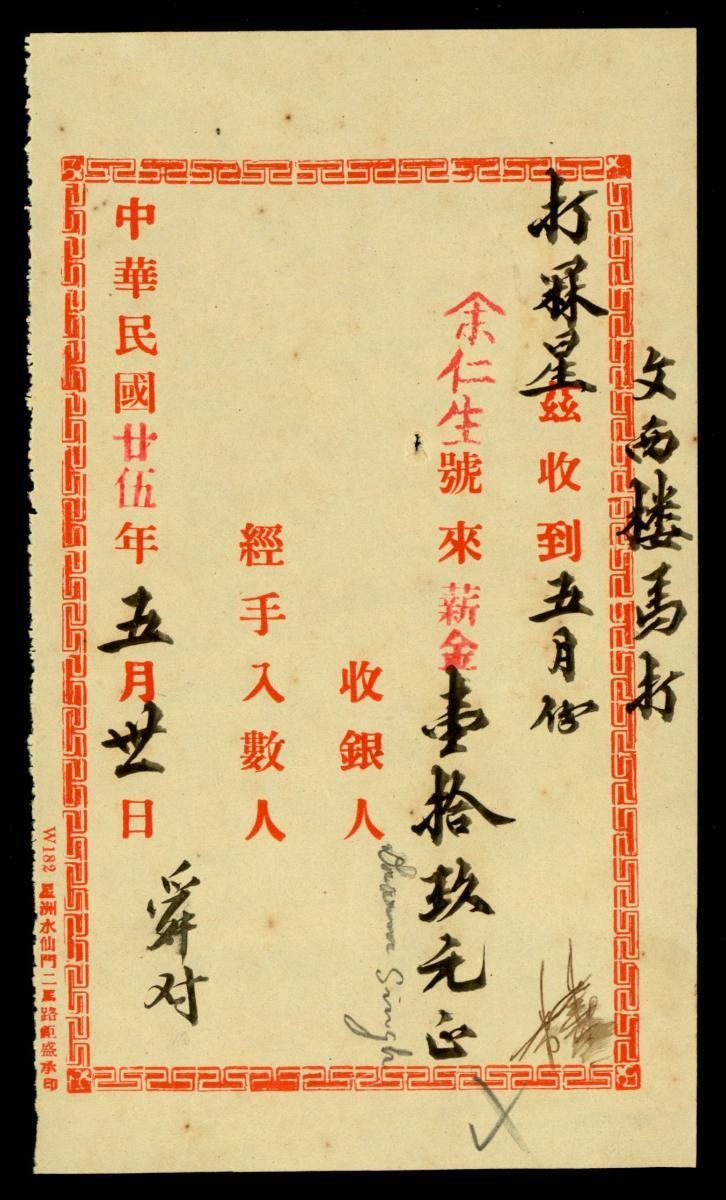 文西楼馬打
打冧星茲收到五月份
余仁生號來薪金壹拾玖元正
收銀人
Singh
經手入數人
中華民國廿伍年五月卅一日
舜对
W182 星洲水仙門二馬路鉅盛承印